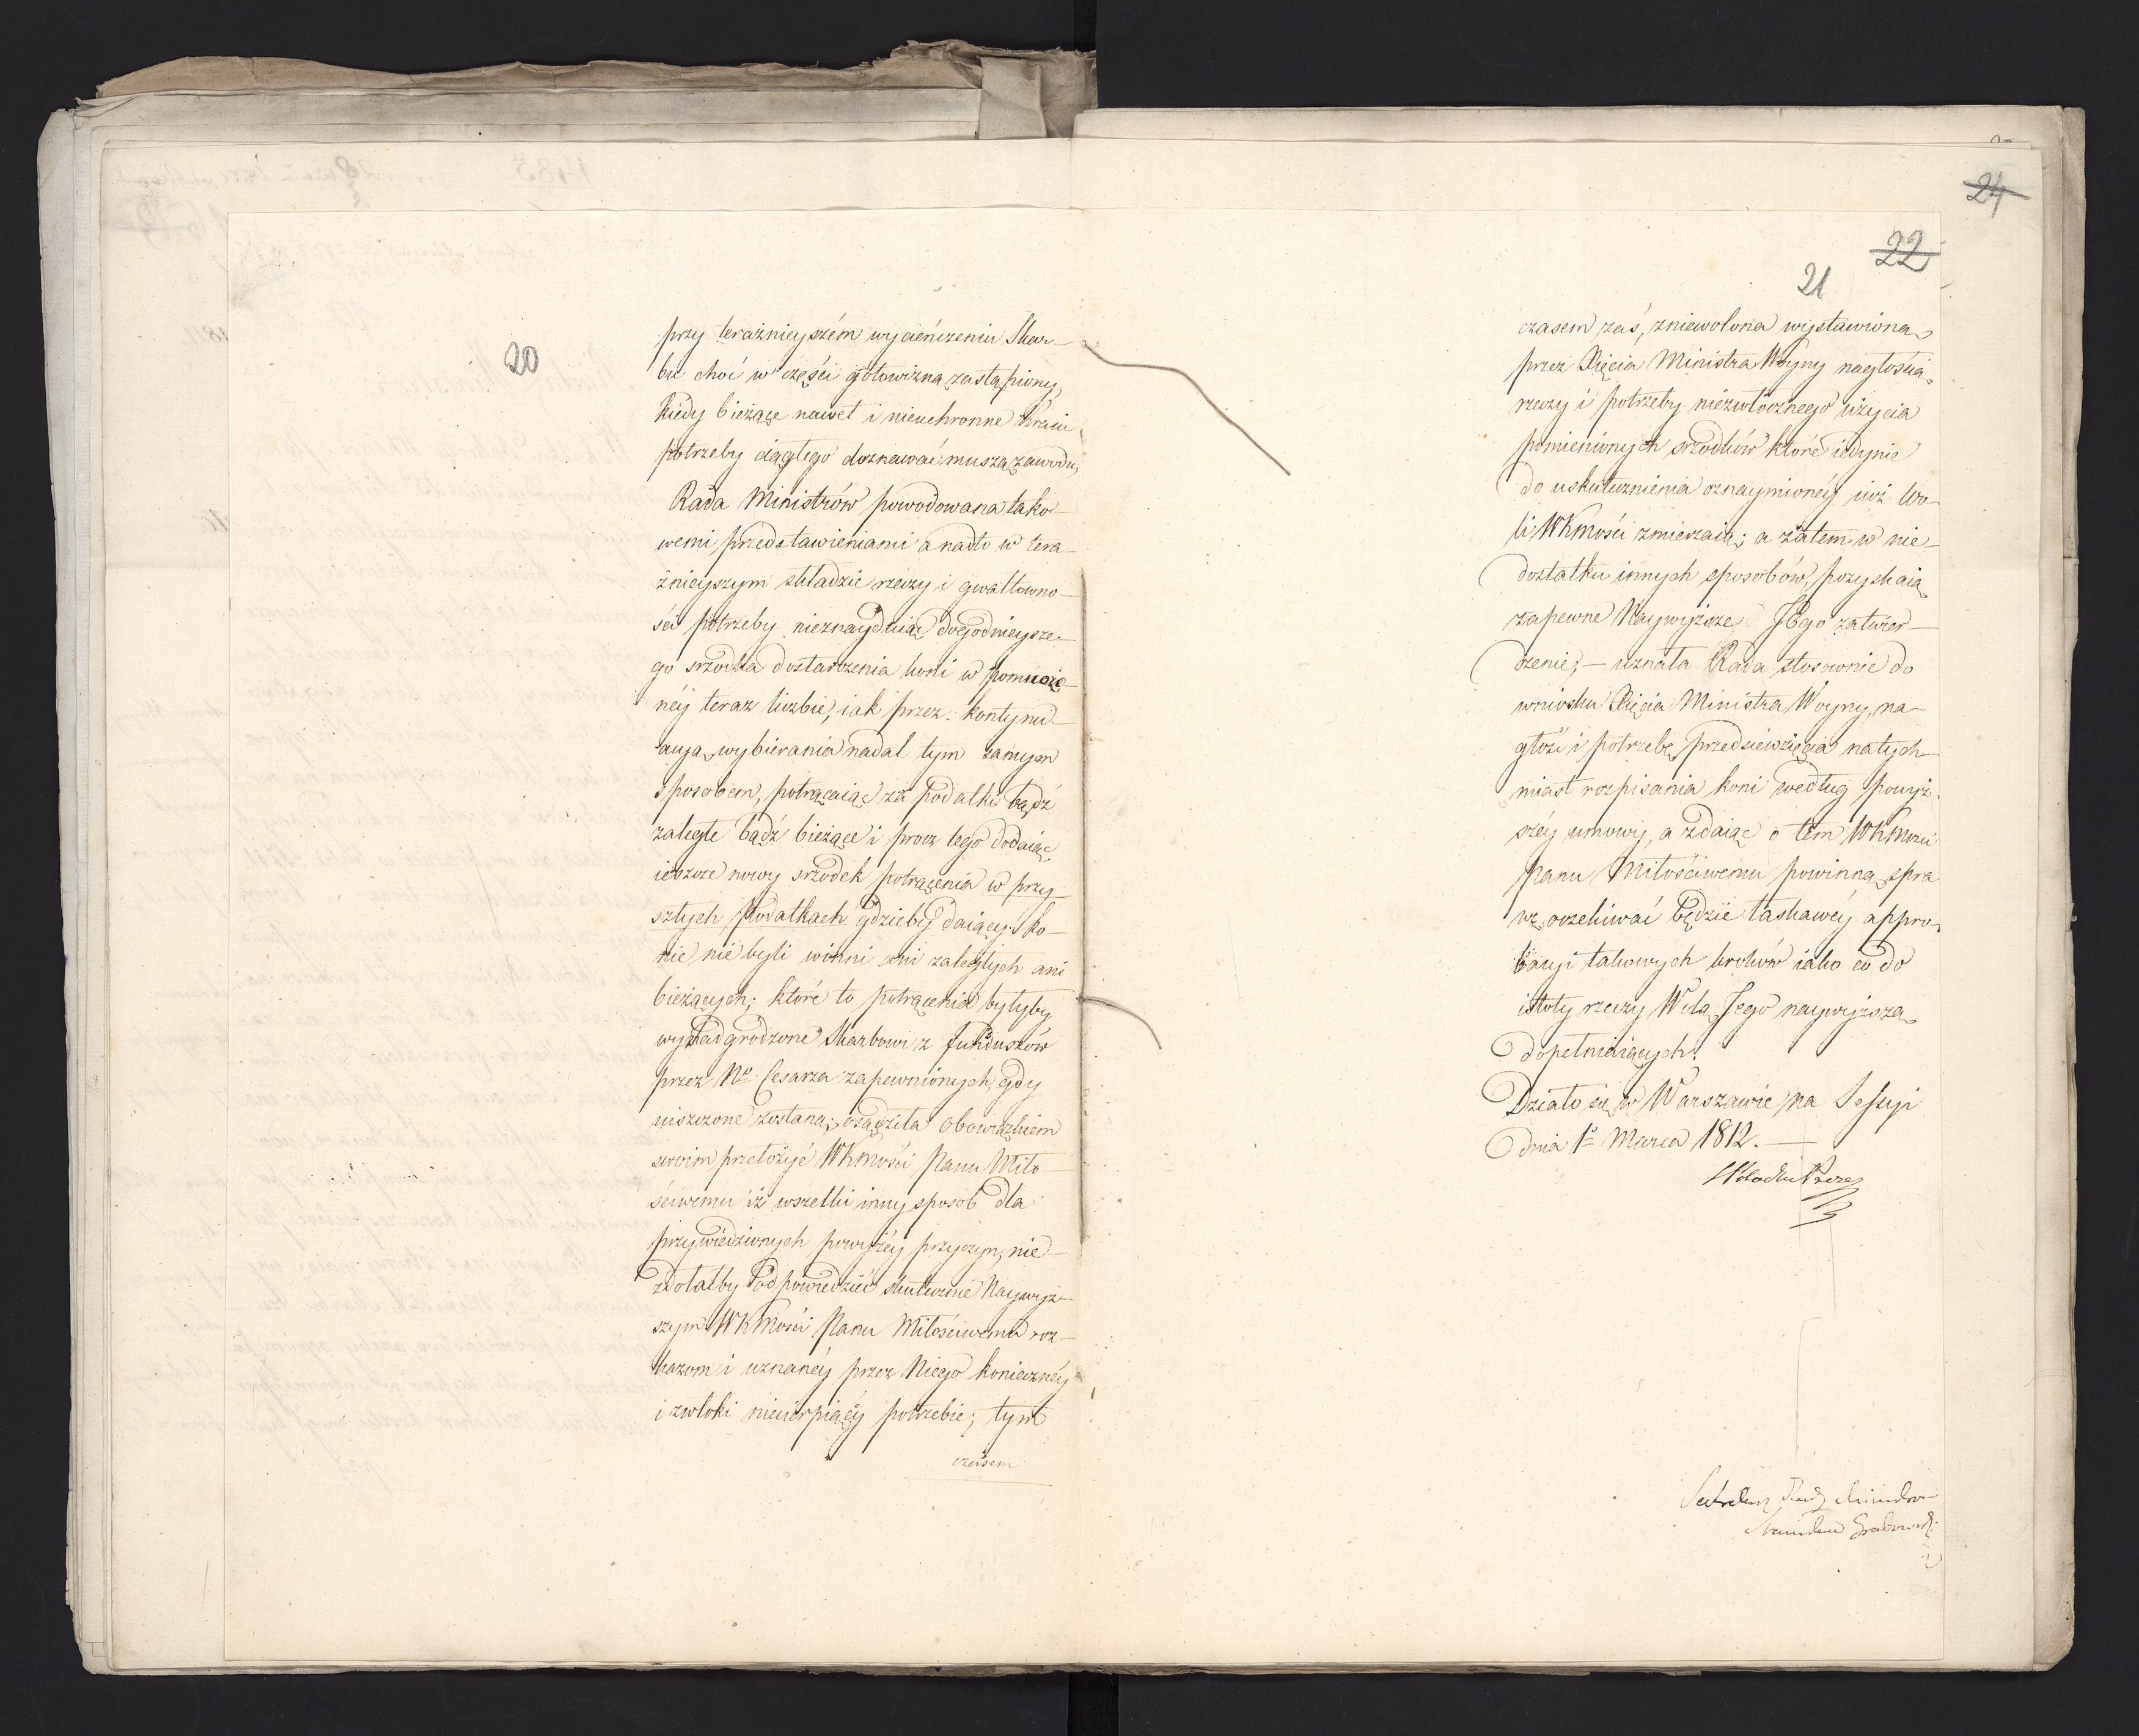 20
przy teraznieyszém wycieńczeniu Skar-
bu choć w części gotowizną zastąpiony,
kiedy bieżące nawet i nieuchronne Kraiu
potrzeby ciągłego doznawać muszą zawodu,
Rada Ministrów powodowana tako-
wemi przedstawieniami a nadto w tera-
źnieyszym składzie rzeczy i gwałtowno-
ści potrzeby nieznayduiąc dogodnieysze-
go srzodka dostarczenia koni w pomnożo-
néy teraz liczbie, iak przez kontynu-
acyą wybierania nadal tym samym
sposobem, potrącaiąc za podatki bądź
zaległe bądź bieżące i procz tego dodaiąc
ieszcze nowy srzodek potrącenia w przy-
szłych podatkach gdzieby daiący ko-
nie nie byli winni ani zaległych ani
bieżących; które to potrącenia byłyby
wynadgrodzone Skarbowi z funduszów
przez Nº Cesarza zapewnionych, gdy
uiszczone zostaną; osądziła obowiązkiem
swoim przełożyć WKmości Panu Miło-
ściwemu iż wszelki inny sposób dla
przywiedzionych powyżéy przyczyn, nie-
zdołałby odpowiedzieć skutecznie Naywyż-
szym WKMości Panu Miłościwemu roz-
kazom i uznanéy przez Niego konieczney
i zwłoki niecierpiącéy potrzebie; tym
czasem
24
22
21
czasem zaś, zniewolona wystawioną
przez Xięcia Ministra Woyny nagłością
rzeczy i potrzeby niezwłocznego użycia
pomienionych srzodków które iedynie
do uskutecznienia oznaymionéy iuż Wo-
li WKmości zmierzaią; a zatem w nie-
dostatku innych sposobów, pozyskaią
zapewne Naywyższe JEgo zatwier-
dzenie; — uznała Rada stosownie do
wniosku Xięcia Ministra Woyny, na-
głość i potrzebę przedsiewzięcia natych-
miast rozpisania koni według powyż-
széy umowy, a zdaiąc o tem WKMości
Panu Miłościwemu powinną spra
wę, oczekiwać będzie łaskawéy appro-
bacyi takowych kroków iako co do
istoty rzeczy Wolą Jego naywyższą
dopełniaiących.
Działo się w Warszawie na Sessyi
dnia 1º Marca 1812. —
Prezes
Sekretarz Rady Ministrów
Stanisław Grabowski